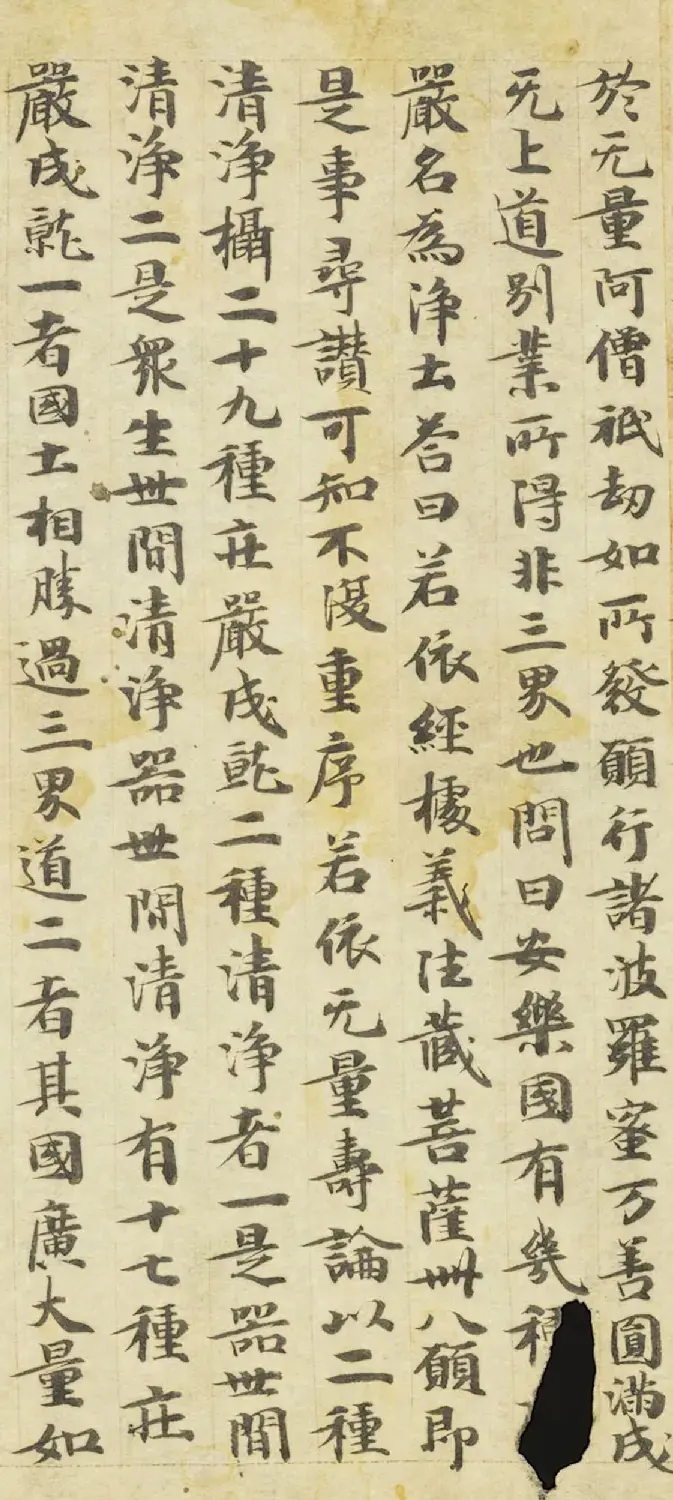 於无量阿僧祇劫如所發願行諸波羅蜜万善圓滿成
无上道別業所得非三界也問曰安樂國有幾種
嚴名為淨土荅曰若依經據義法藏菩薩卌八願即
是事尋讚可知不復重序若依无量壽論以二種
清淨攝二十九種莊嚴成就二種清淨者一是器世間
清淨二是衆生世間清淨器世間清淨有十七種莊
嚴成就一者國土相勝過三界道二者其國廣大量如